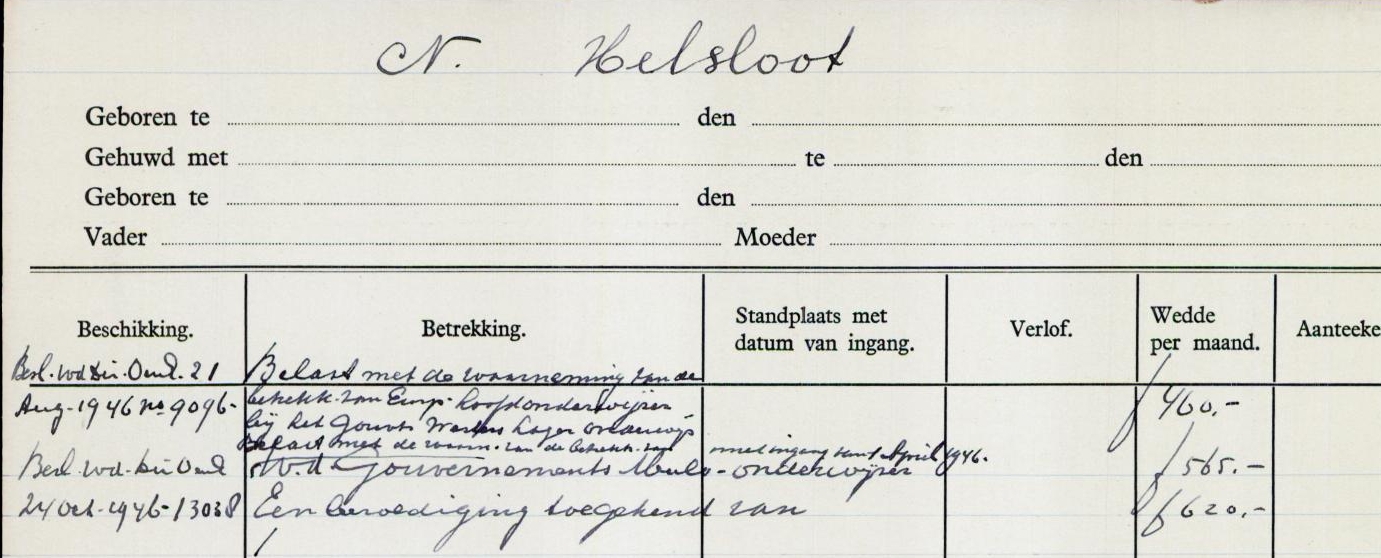 N. Helsloot
Geboren te den
Gehuwd met te den
Geboren te den
Vader Moeder
Beschikking. Betrekking. Standplaats met datum van ingang. Verlof. Wedde per maand. Aanteeke
Besl. v/d Dir. Ond. 21 Belast met de waarneming van de
Aug. 1946 no 9096 - betrekk. van Europ. hoofdonderwijzer 460.-
bij het Gouvts Lager onderwijs
Belast met de waarn. van de betrekk. van met ingang van 1 April 1946.
Besl. v.d. Dir Ond Gouvernements Mulo - onderwijzer 565.-
24 Oct. 1946 - 13038 Een bezoldiging toegekend van f 620.-